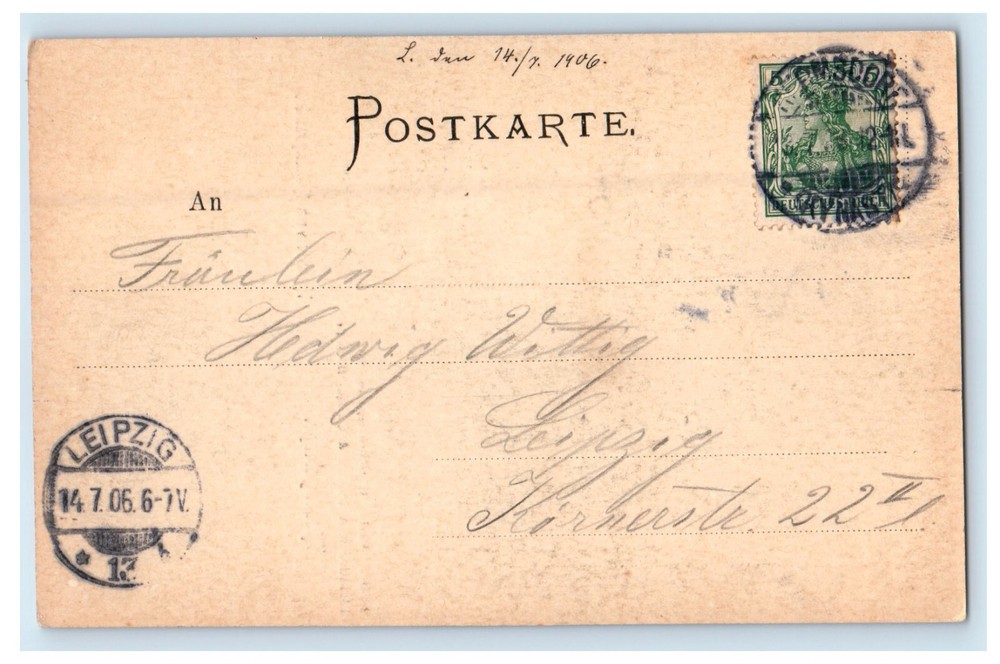 L. den 14./7. 1906.
POSTKARTE.
An
Fräulein
Hedwig Wittig
Leipzig
Körnerstr. 22 II
5
DEUTSCHES REICH
LEIPZIG
14.7.06.6-7V.
* 13